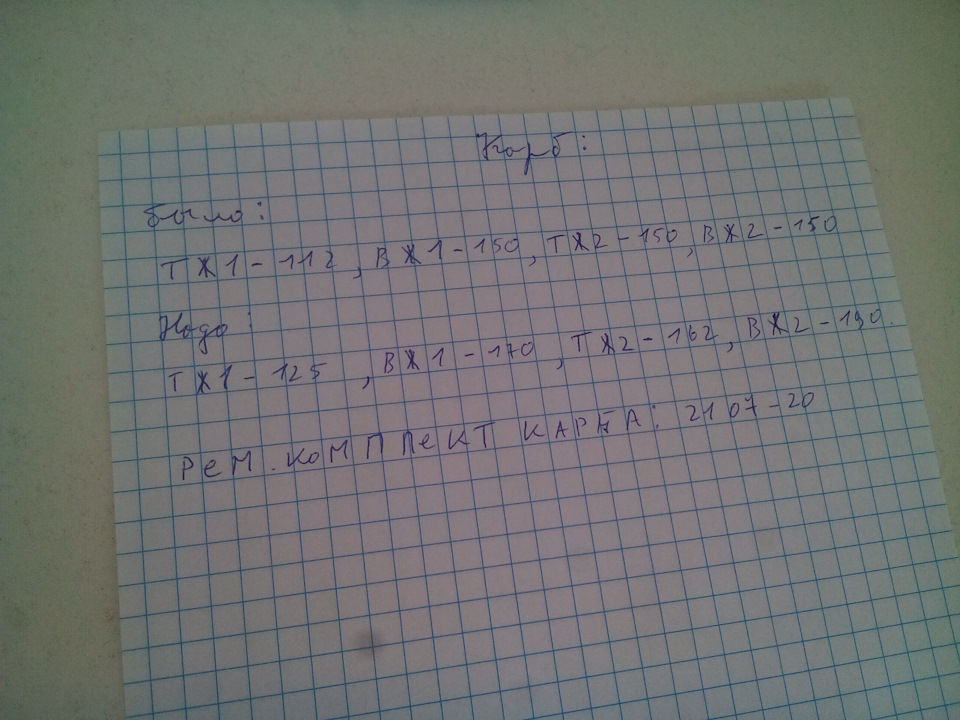 Карб:
было:
ТЖ1-112, ВЖ1-150, ТЖ2-150, ВЖ2-150
Надо:
ТЖ1-125, ВЖ1-170, ТЖ2-162, ВЖ2-190.
РЕМ.КОМПЛЕКТ КАРБА: 2107-20